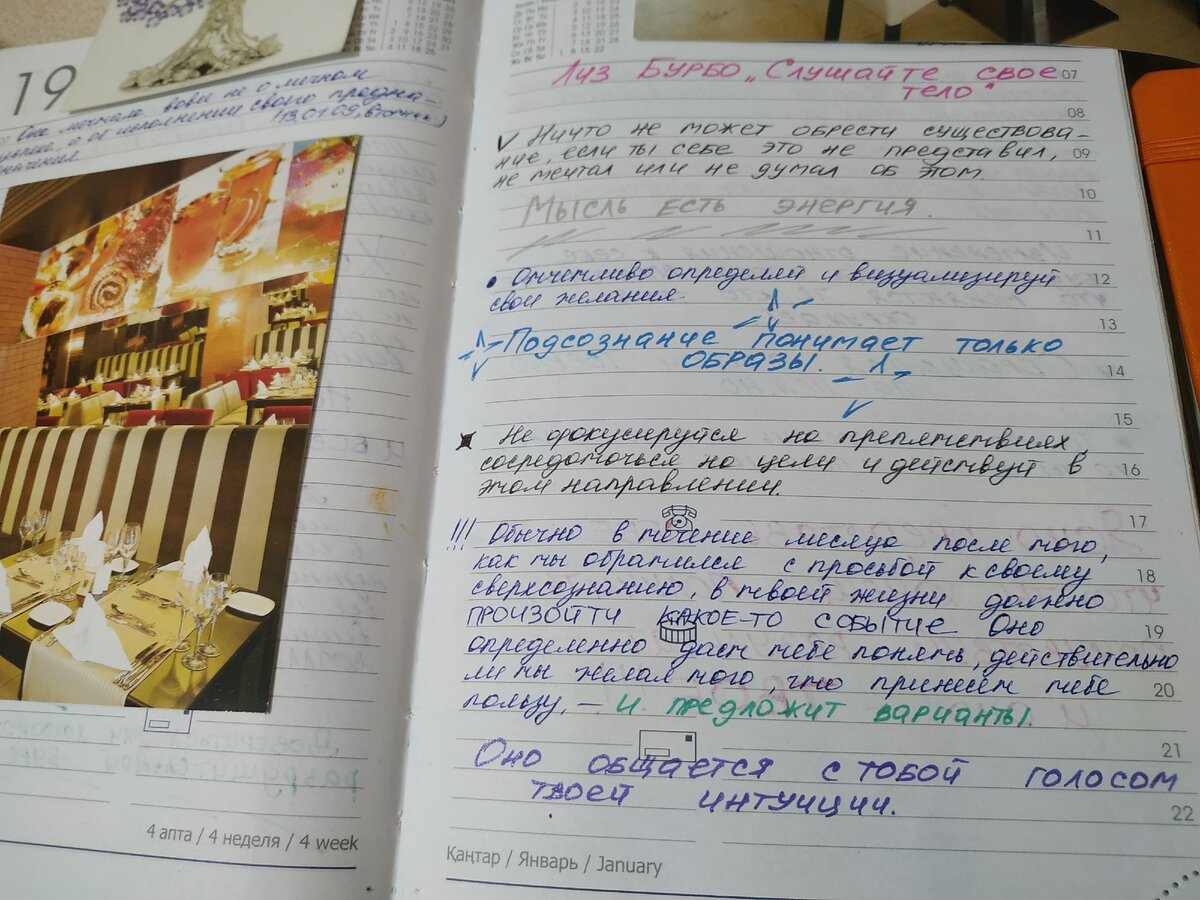 19
Она мечтала вовсе не о личном
а об исполнении своего предна-
значения (13.01.09, вторник)
4 апта / 4 неделя / 4 week
Лиз Бурбо „Слушайте свое
тело"
07
08
V Ничто не может обрести существова-
ние, если ты себе это не представил,
09
не мечтал или не думал об этом.
10
Мысль есть энергия.
11
• Отчетливо определяй и визуализируй
12
свои желания.
13
Подсознание понимает только
ОБРАЗЫ.
14
15
Не фокусируйся на препятствиях,
сосредоточься на цели и действуй в
16
этом направлении.
17
!!! Обычно в течение месяца после того,
как ты обратился с просьбой к своему
18
сверхсознанию, в твоей жизни должно
ПРОИЗОЙТИ КАКОЕ-ТО СОБЫТИЕ Оно
19
определенно даст тебе понять, действительно
ли ты желал того, что принесет тебе
20
пользу, – И ПРЕДЛОЖИТ ВАРИАНТЫ.
21
Оно общается с тобой голосом
твоей интуиции.
22
Қаңтар / Январь / January